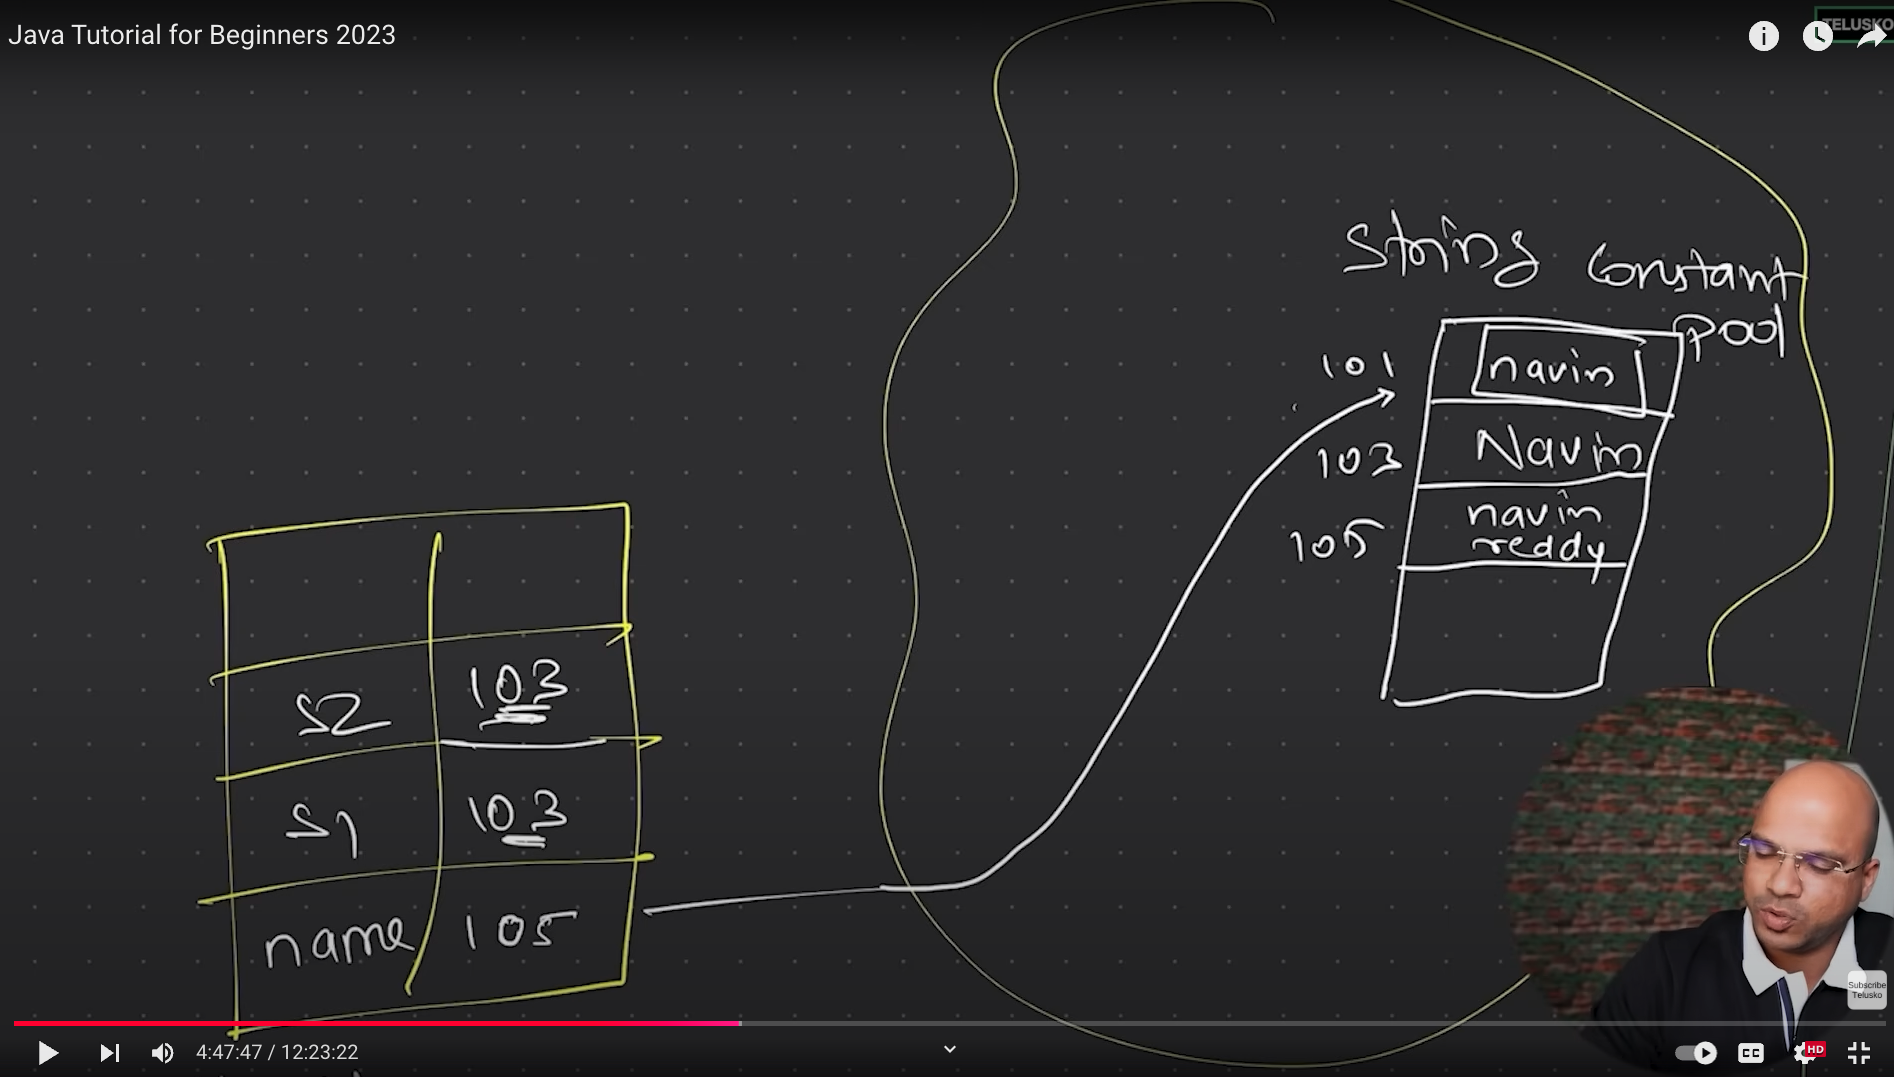 Java Tutorial for Beginners 2023
TELUSKO
String Constant
Pool
101 navin
103 Navin
105 navin
reddy
S2 103
S1 103
name 105
Subscribe
Telusko
4:47:47 / 12:23:22
CC
HD